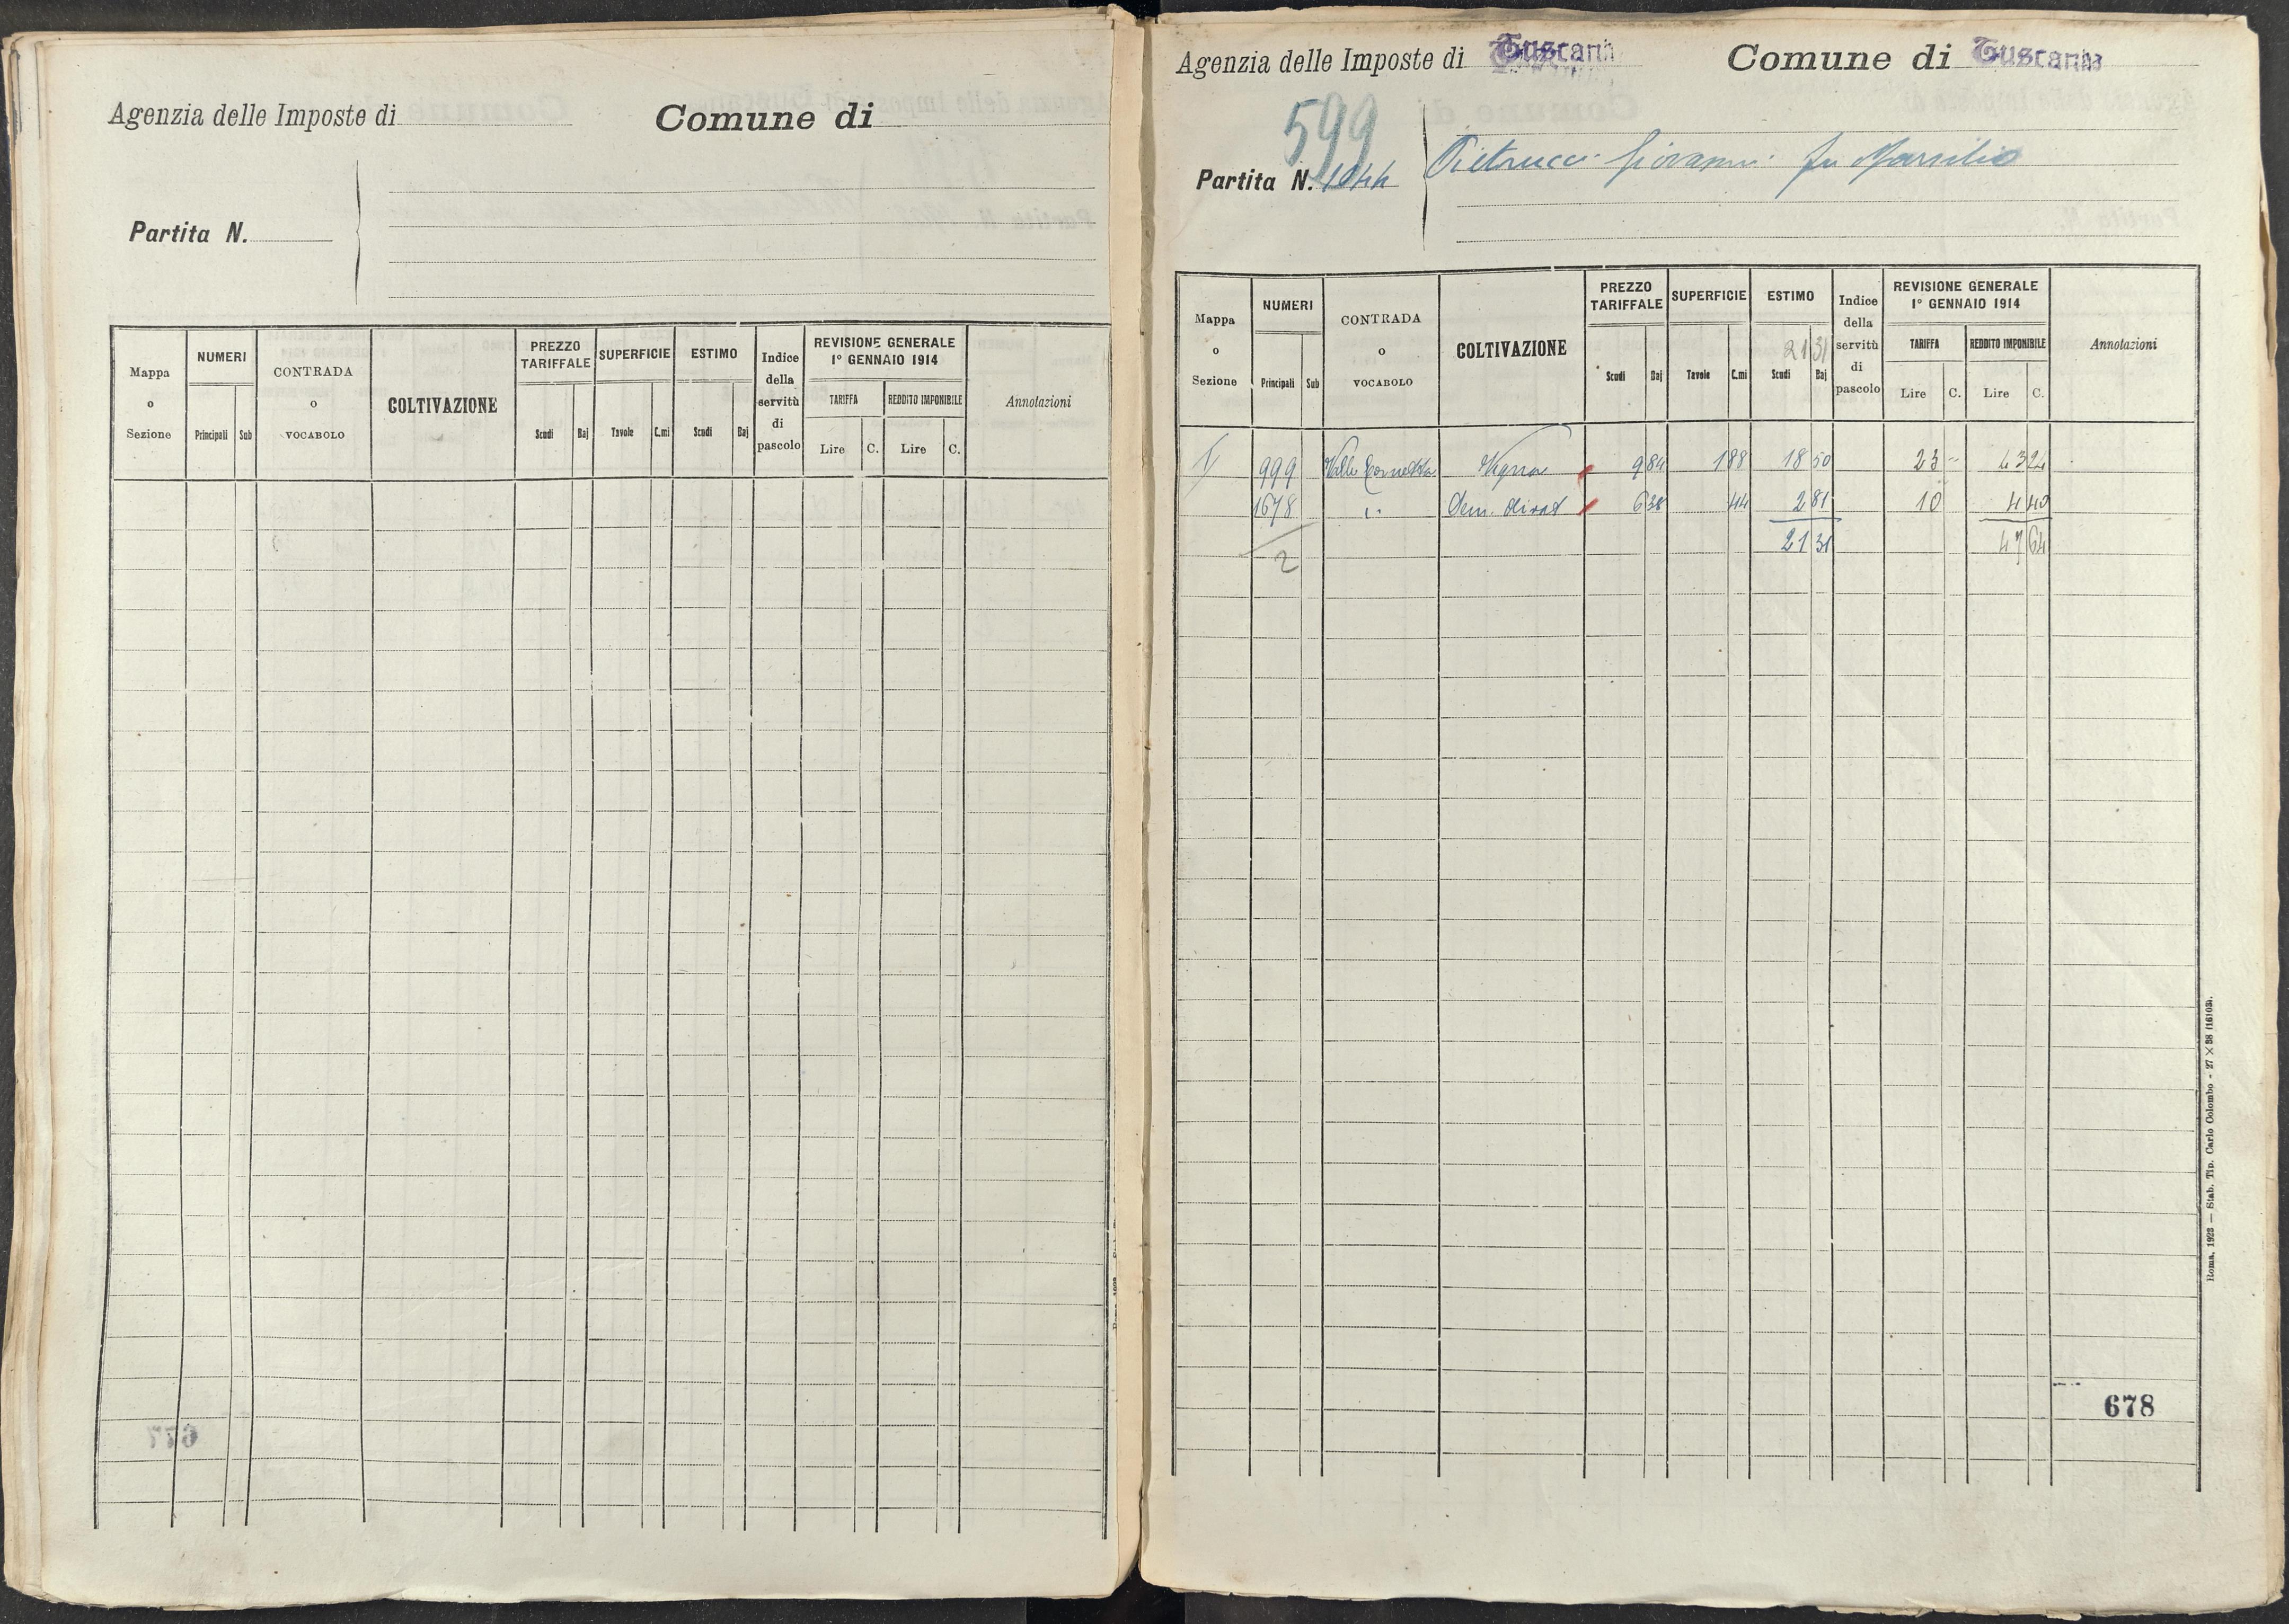 Agenzia delle Imposte di
Comune di
Partita N.
Mappa o Sezione
NUMERI
Principali Sub
CONTRADA o VOCABOLO
COLTIVAZIONE
PREZZO TARIFFALE
Scudi Baj
SUPERFICIE
Tavole C.mi
ESTIMO
Scudi Baj
Indice della servitù di pascolo
REVISIONE GENERALE
1° GENNAIO 1914
TARIFFA
Lire C.
REDDITO IMPONIBILE
Lire C.
Annotazioni
677
Agenzia delle Imposte di Tuscania
Comune di Tuscania
599
Partita N. 1044
Pietrucci Giovanni fu Marsilio
Mappa o Sezione
NUMERI
Principali Sub
CONTRADA o VOCABOLO
COLTIVAZIONE
PREZZO TARIFFALE
Scudi Baj
SUPERFICIE
Tavole C.mi
ESTIMO
21 31
Scudi Baj
Indice della servitù di pascolo
REVISIONE GENERALE
1° GENNAIO 1914
TARIFFA
Lire C.
REDDITO IMPONIBILE
Lire C.
Annotazioni
999 Valle Cornetta Vigna 9 84 1 88 18 50 23 - 43 24
1678 " Sem. olivat 6 38 44 2 81 10 4 40
2 21 31 47 64
678
Roma, 1923 — Stab. Tip. Carlo Colombo - 27 × 38 (16103).